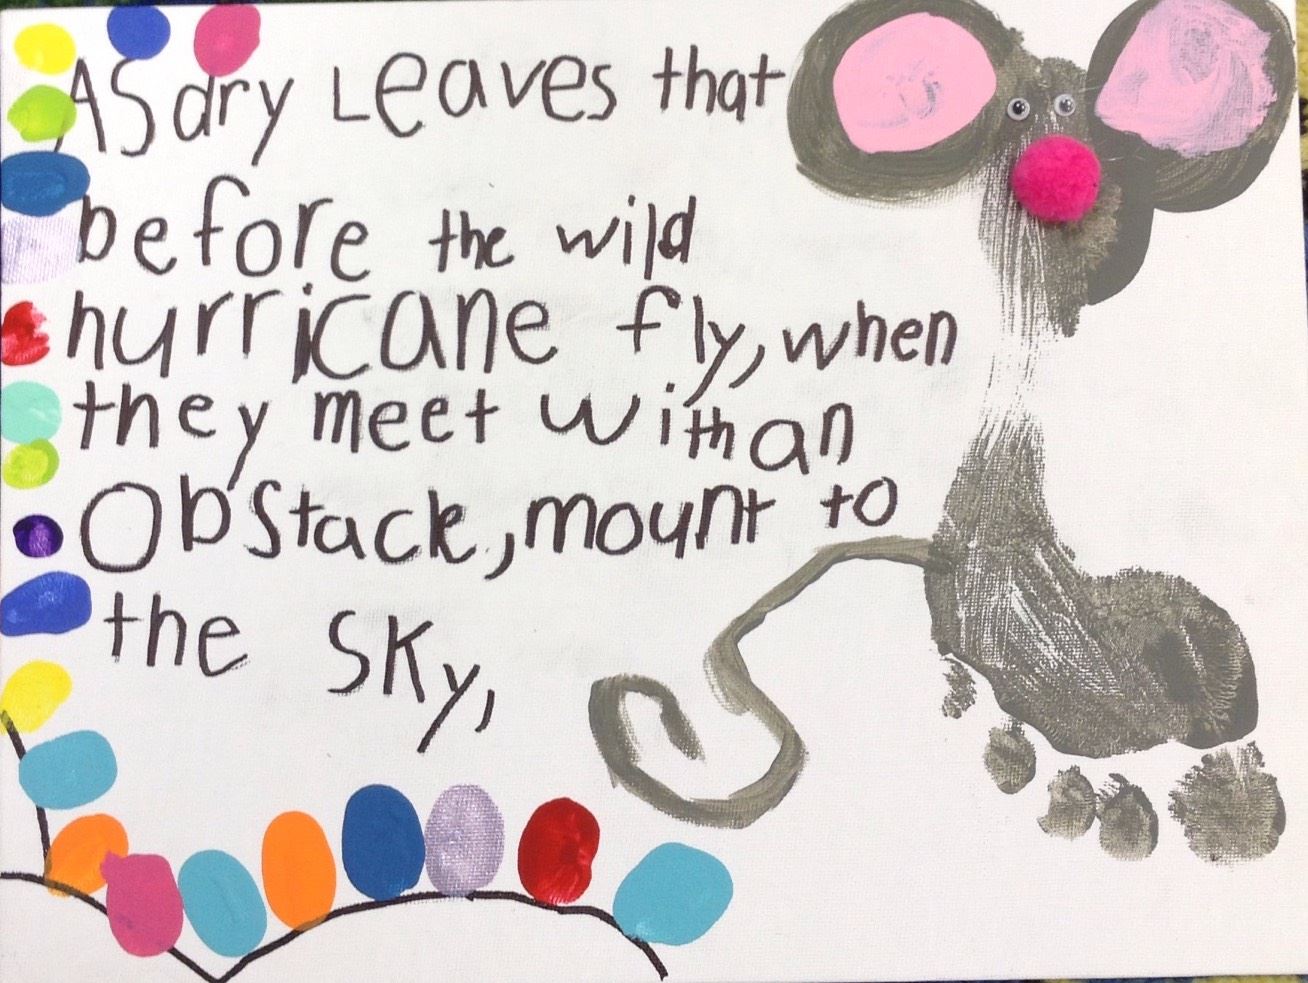 AS dry Leaves that
before the wild
hurricane fly, when
they meet with an
Obstack, mount to
the SKy,